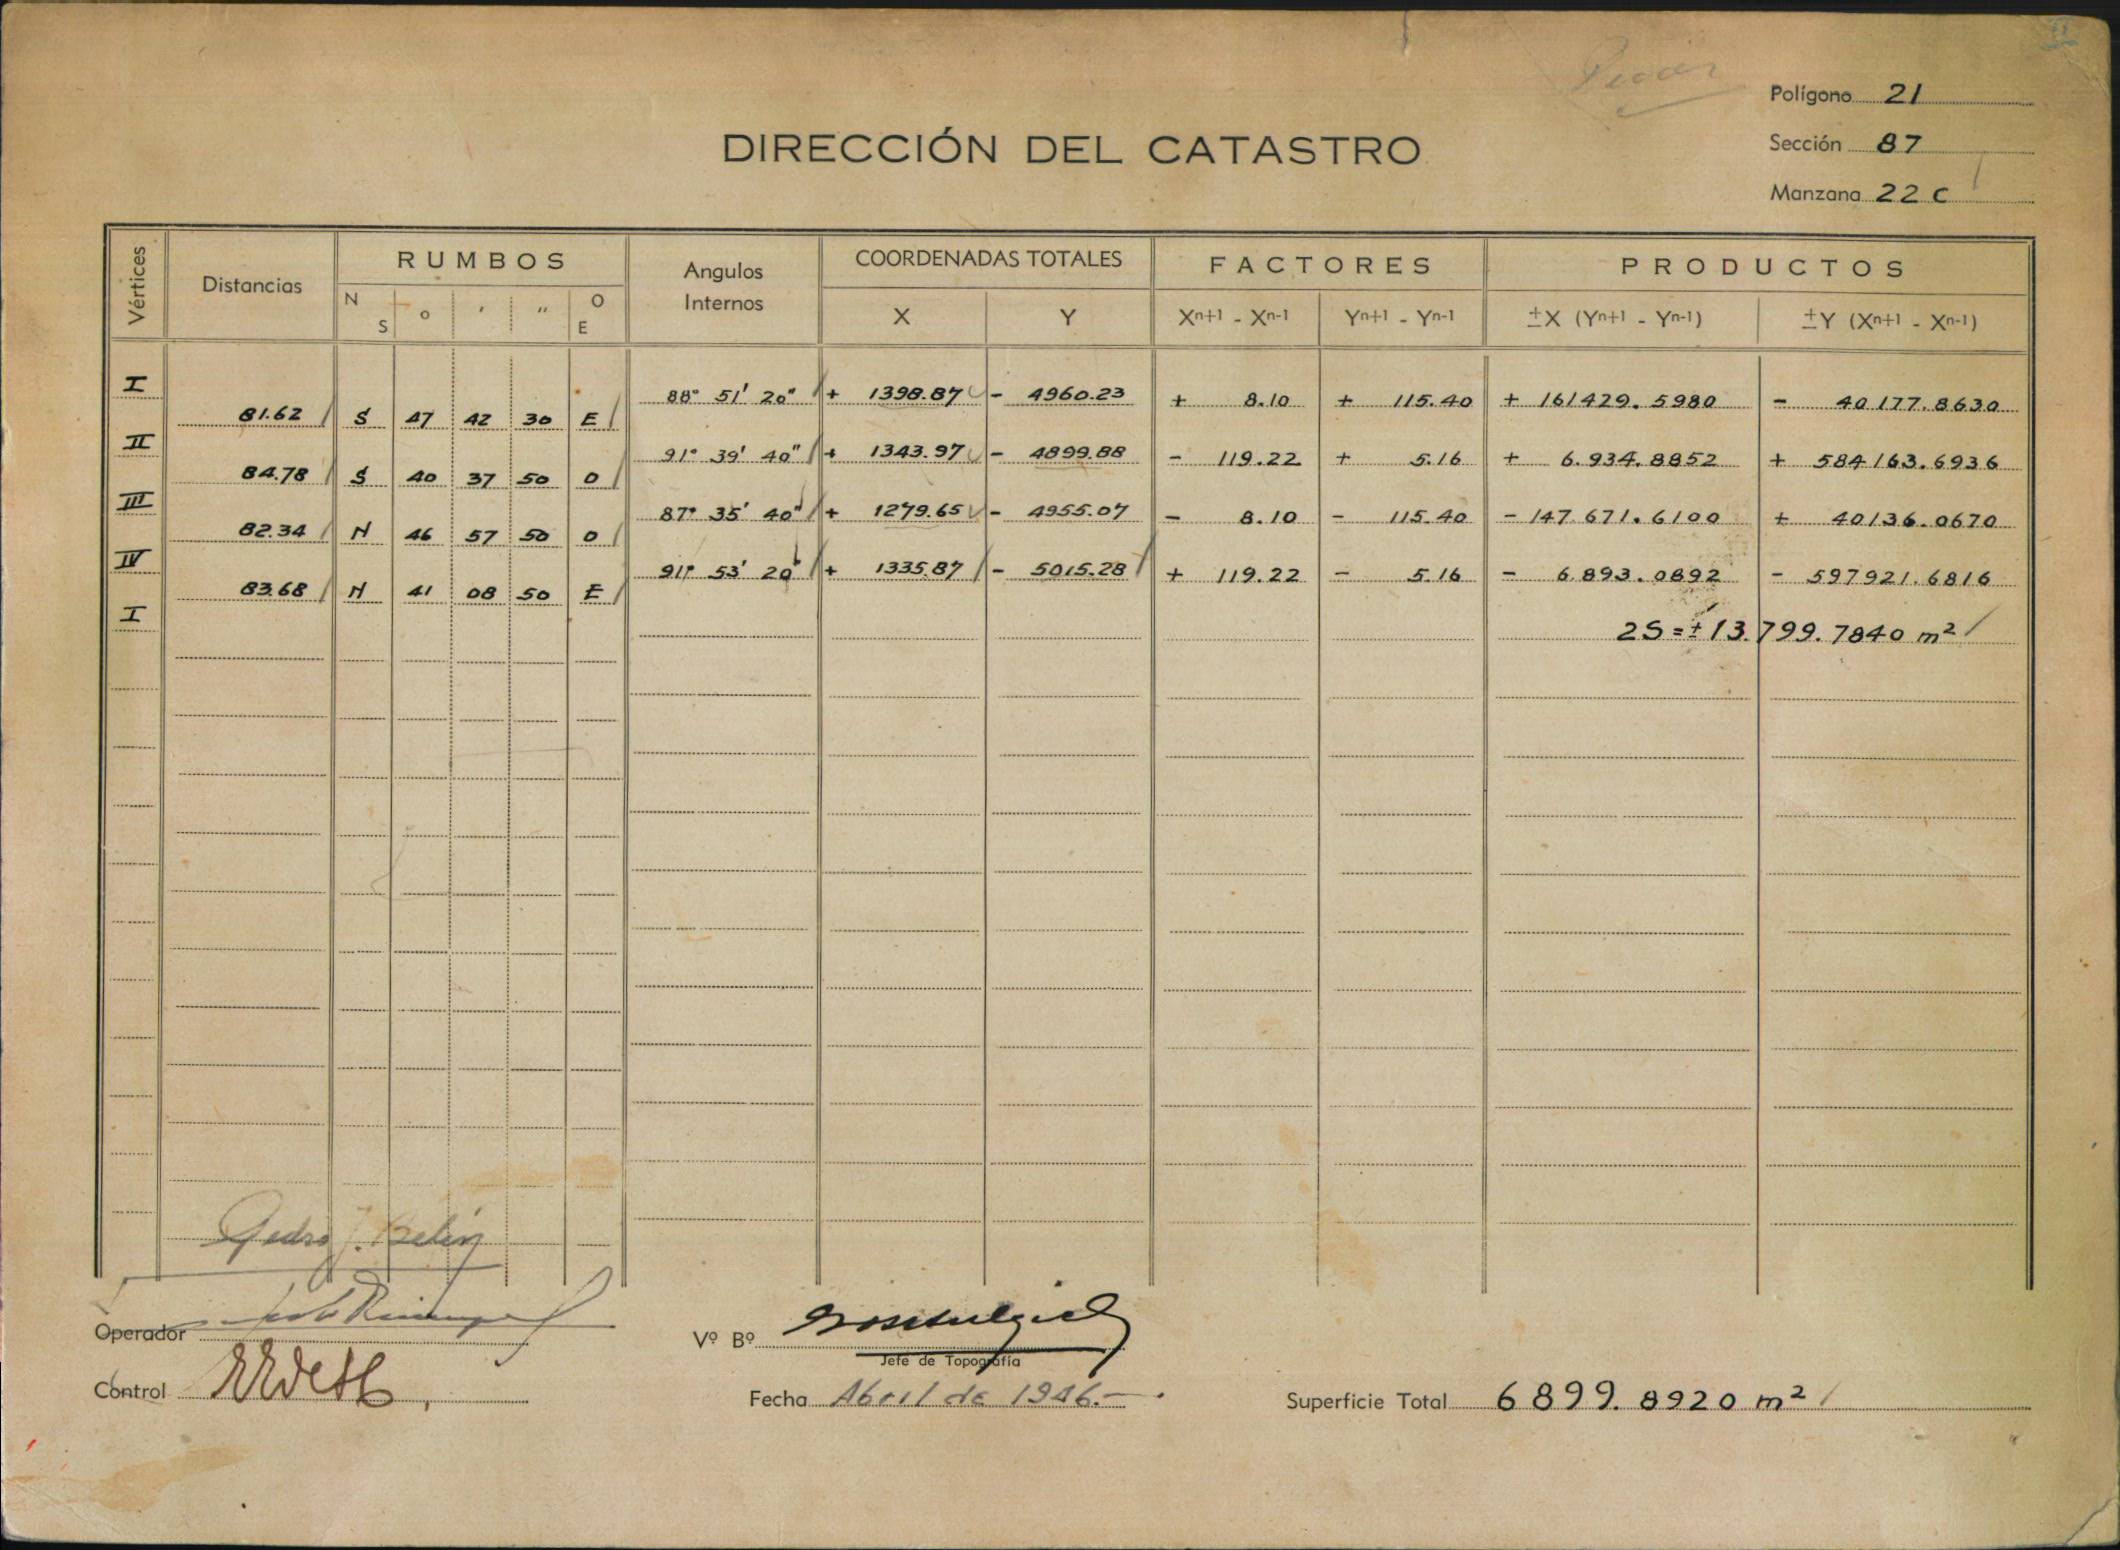 Polígono 21
DIRECCIÓN DEL CATASTRO
Sección 87
Manzana 22 C
Vértices Distancias RUMBOS Angulos Internos COORDENADAS TOTALES FACTORES PRODUCTOS
N S ° ' " O E X Y Xn+1 - Xn-1 Yn+1 - Yn-1 ±X (Yn+1 - Yn-1) ±Y (Xn+1 - Xn-1)
I 88° 51' 20" + 1398.87 - 4960.23 + 8.10 + 115.40 + 161429.5980 - 40177.8630
81.62 S 47 42 30 E
II 91° 39' 40" + 1343.97 - 4899.88 - 119.22 + 5.16 + 6.934.8852 + 584163.6936
84.78 S 40 37 50 O
III 87° 35' 40" + 1279.65 - 4955.07 - 8.10 - 115.40 - 147.671.6100 + 40136.0670
82.34 N 46 57 50 O
IV 91° 53' 20" + 1335.87 - 5015.28 + 119.22 - 5.16 - 6.893.0892 - 597921.6816
83.68 N 41 08 50 E
I 2S = ± 13.799.7840 m²
Pedro J. Belén
Operador
Vº Bº
Jefe de Topografía
Control
Fecha Abril de 1946.-
Superficie Total 6899.8920 m²